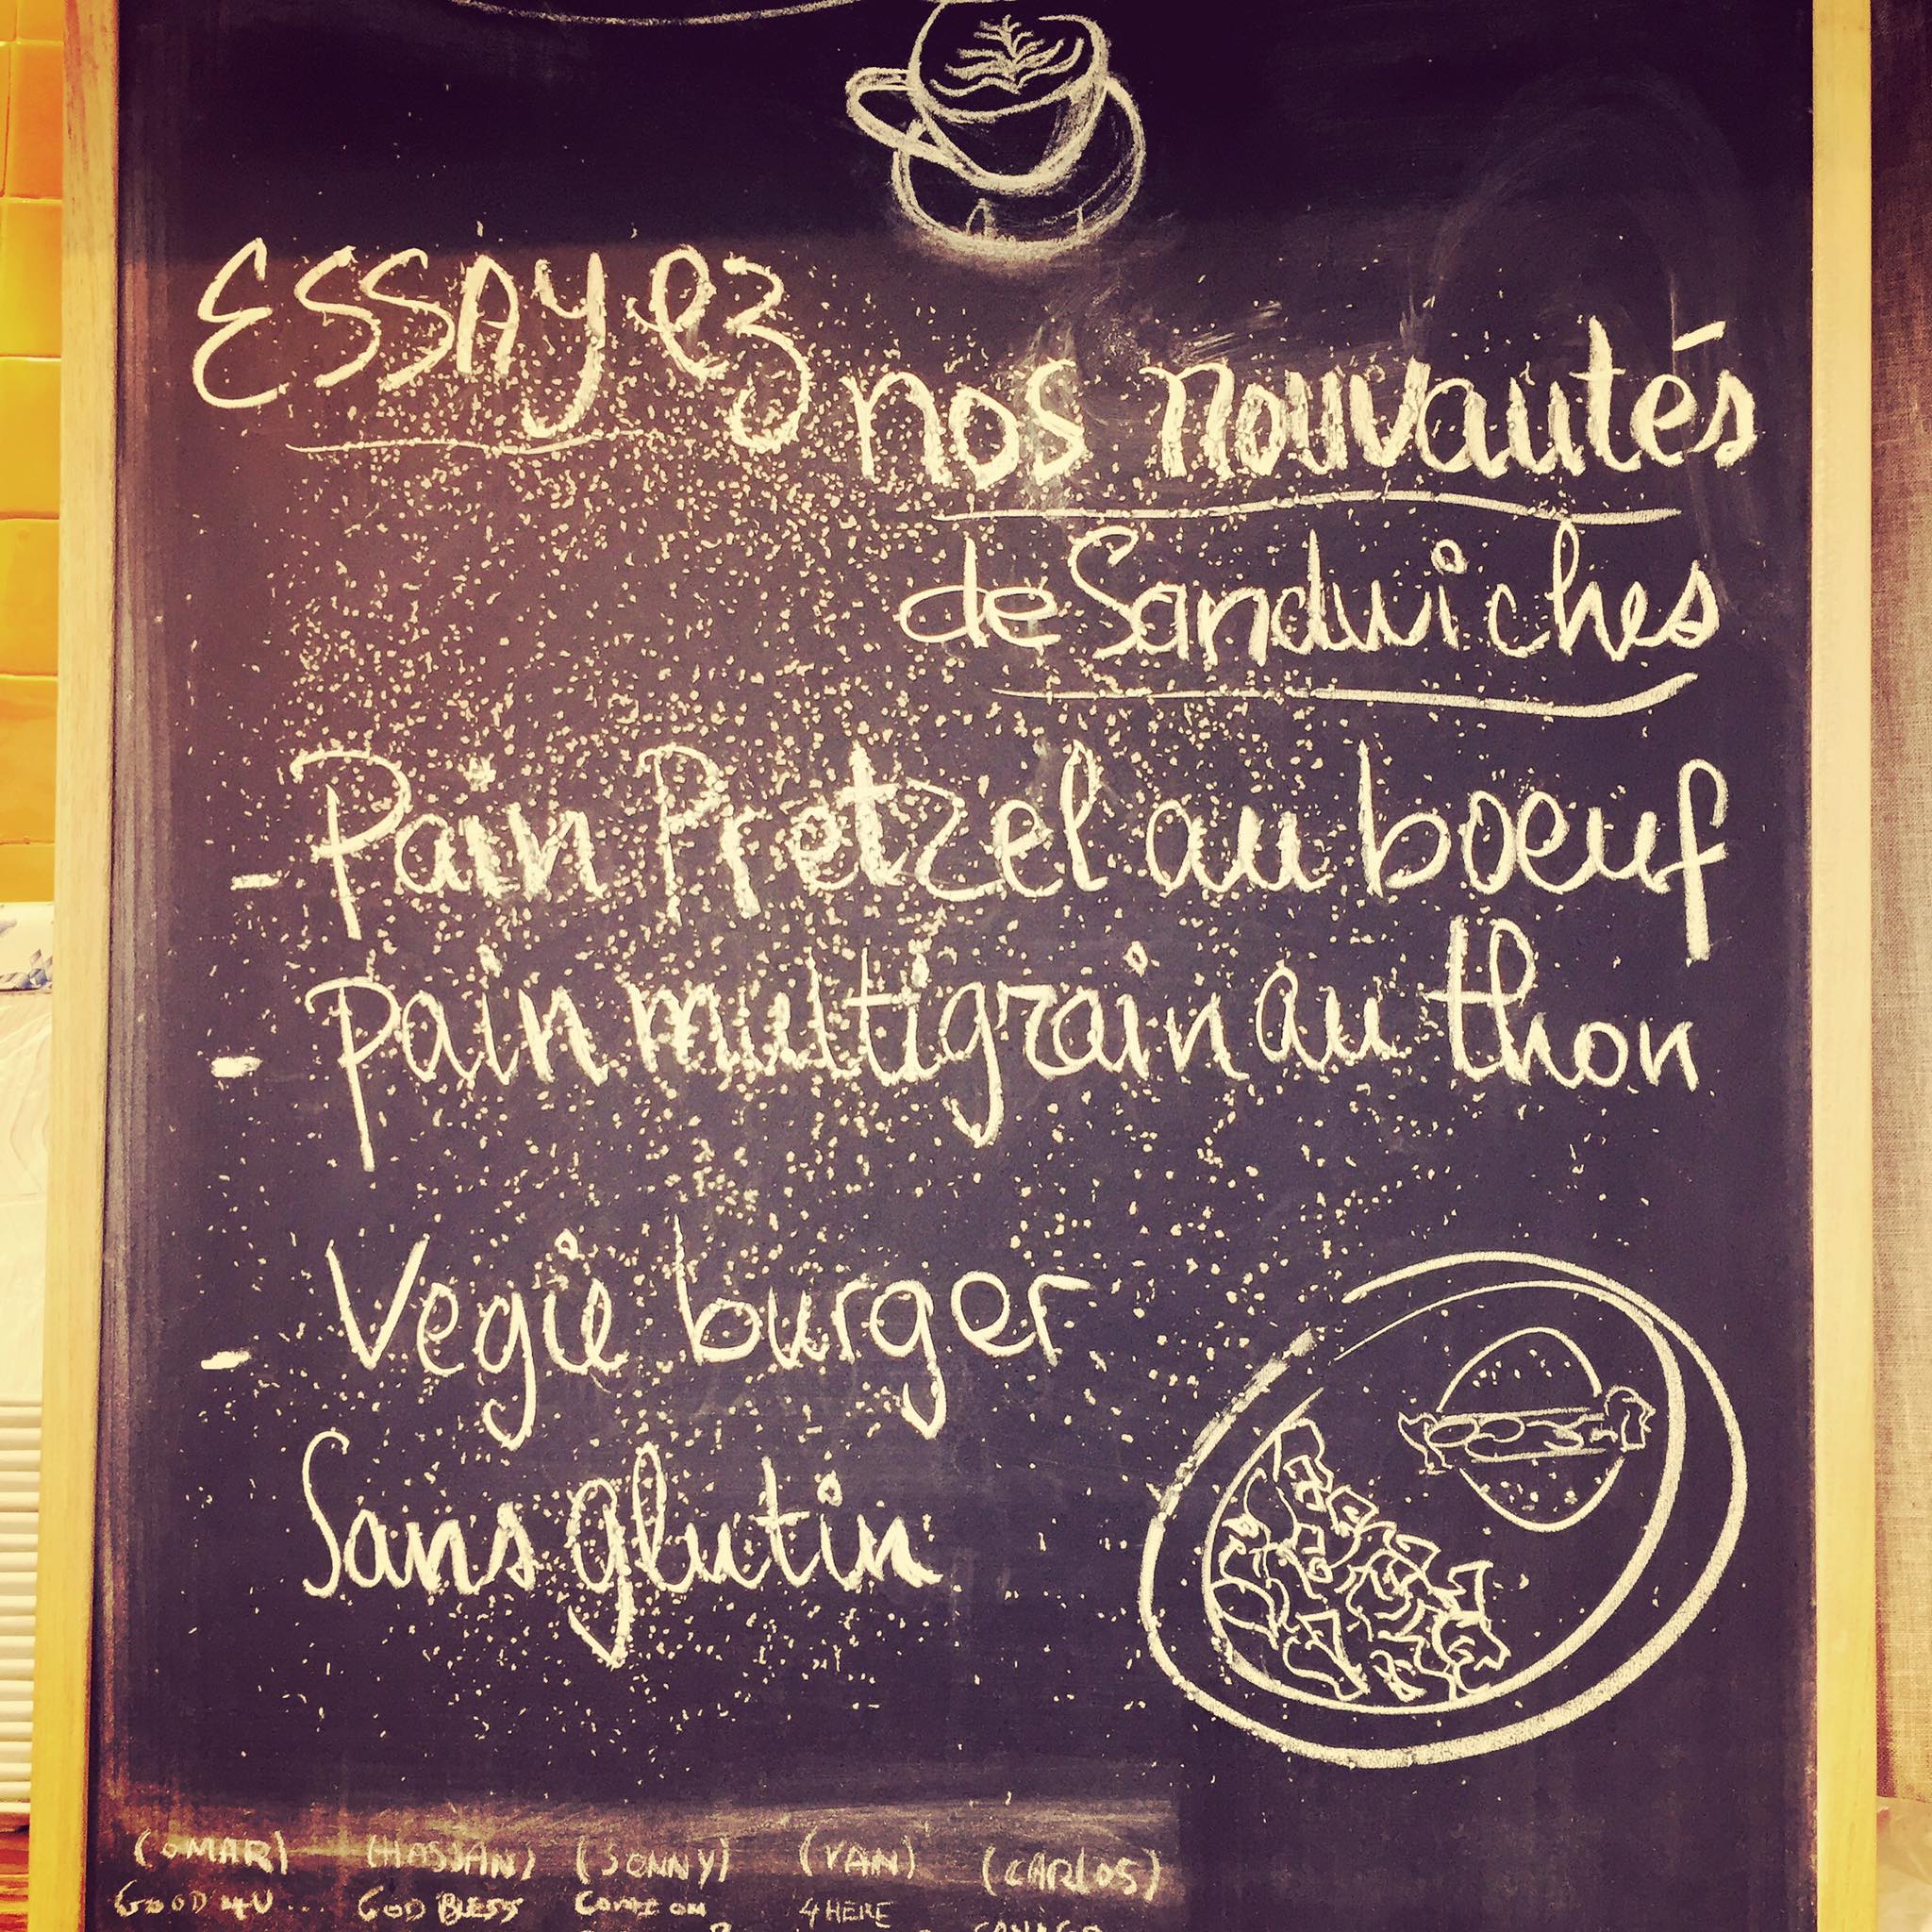 ESSAYez
nos nouvautés
de Sandwiches
- Pain Pretzel au boeuf
- Pain multigrain au thon
- Vegie burger
Sans glutin
(OMAR) (HASSAN) (SONNY) (VAN) (CARLOS)
GOOD 4U... GOD BLESS COME ON 4 HERE